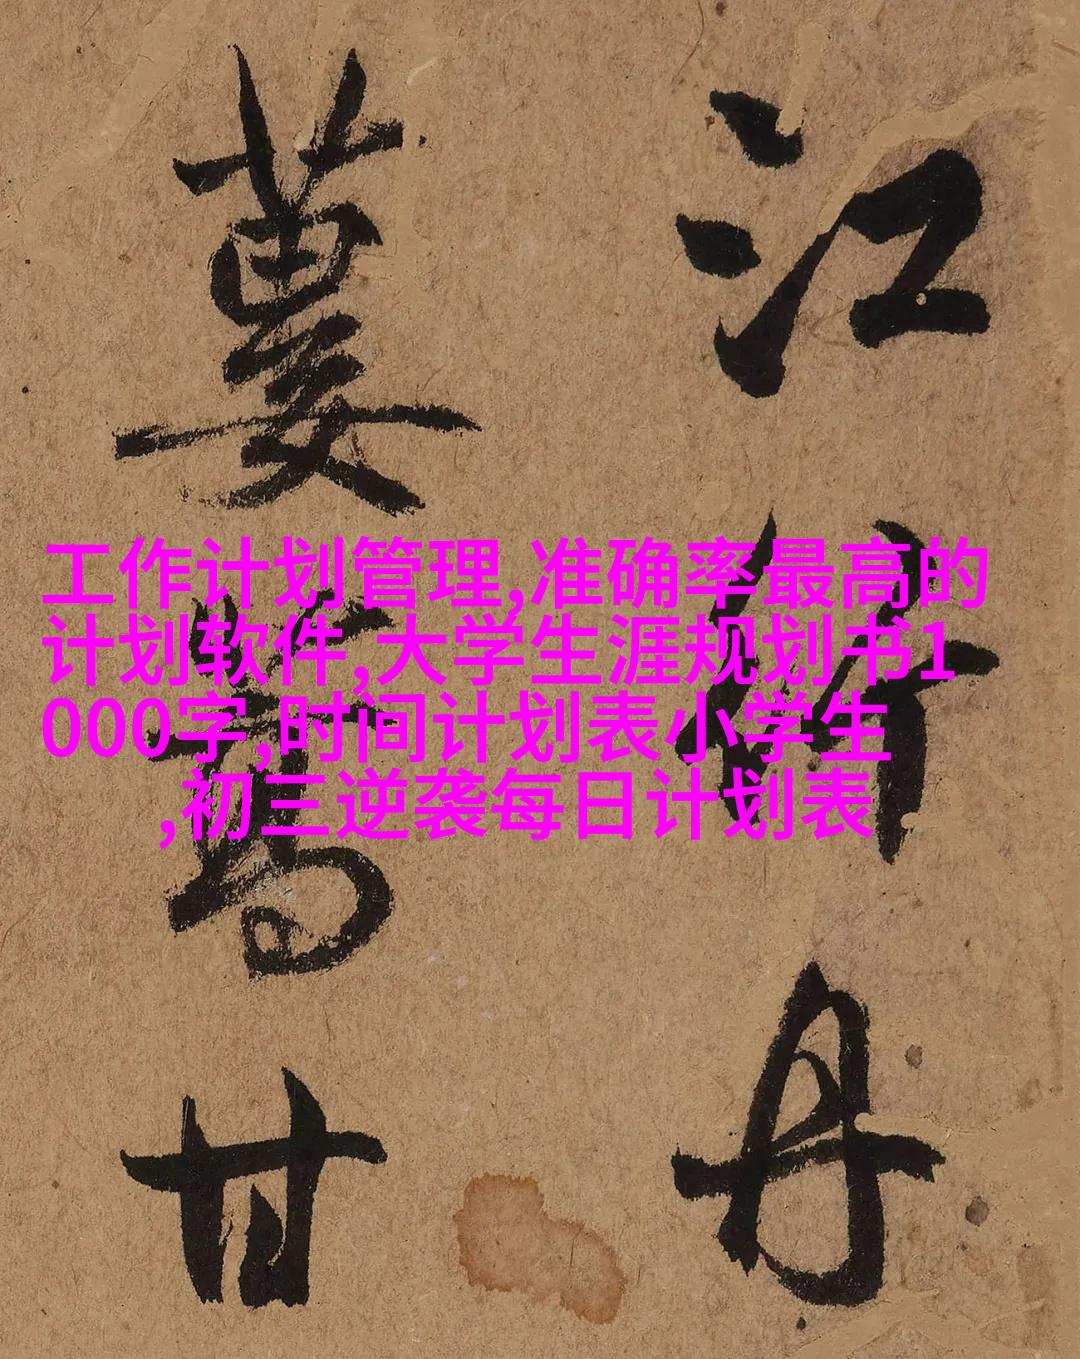 江竹丹
蔞蒿甘
工作计划管理,准确率最高的
计划软件,大学生涯规划书1
000字,时间计划表小学生
,初三逆袭每日计划表